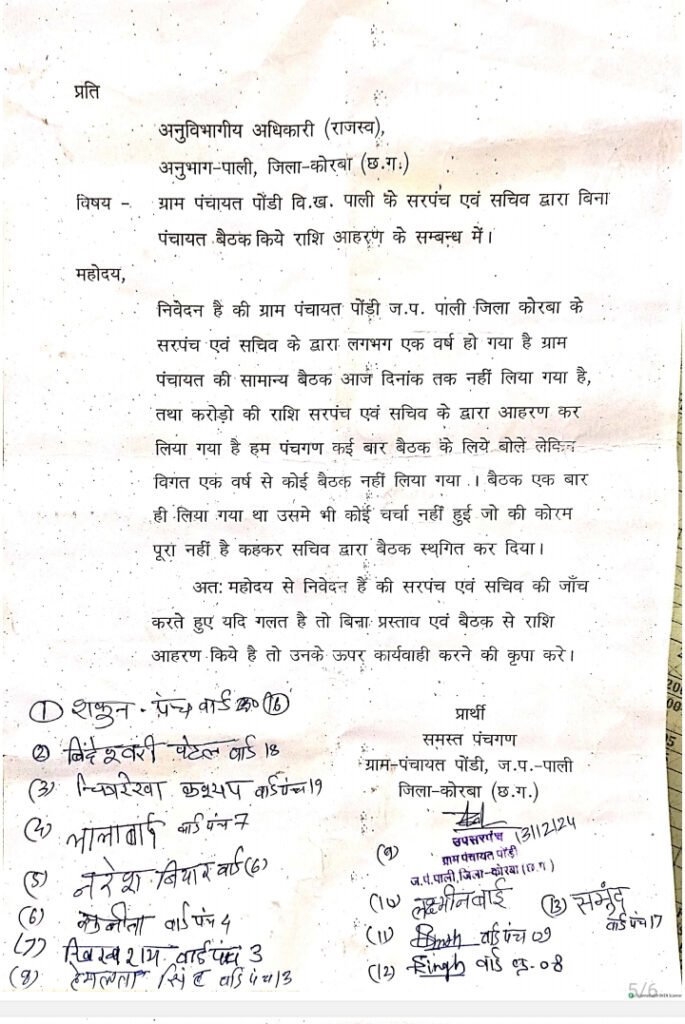 प्रति
अनुविभागीय अधिकारी (राजस्व),
अनुभाग-पाली, जिला-कोरबा (छ.ग.)
विषय - ग्राम पंचायत पोंडी वि.ख. पाली के सरपंच एवं सचिव द्वारा बिना
पंचायत बैठक किये राशि आहरण के सम्बन्ध में।
महोदय,
निवेदन है की ग्राम पंचायत पोंड़ी ज.प. पाली जिला कोरबा के
सरपंच एवं सचिव के द्वारा लगभग एक वर्ष हो गया है ग्राम
पंचायत की सामान्य बैठक आज दिनांक तक नहीं लिया गया है,
तथा करोड़ो की राशि सरपंच एवं सचिव के द्वारा आहरण कर
लिया गया है हम पंचगण कई बार बैठक के लिये बोले लेकिन
विगत एक वर्ष से कोई बैठक नहीं लिया गया । बैठक एक बार
ही लिया गया था उसमे भी कोई चर्चा नहीं हुई जो की कोरम
पूरा नहीं है कहकर सचिव द्वारा बैठक स्थगित कर दिया।
अतः महोदय से निवेदन है की सरपंच एवं सचिव की जाँच
करते हुए यदि गलत है तो बिना प्रस्ताव एवं बैठक से राशि
आहरण किये है तो उनके ऊपर कार्यवाही करने की कृपा करे।
प्रार्थी
समस्त पंचगण
ग्राम-पंचायत पोंडी, ज.प.-पाली
जिला-कोरबा (छ.ग.)
(1) शकुन - पंच वार्ड (16)
(2) बिंदेश्वरी पटेल वार्ड 18
(3) चित्ररेखा कश्यप वार्ड पंच 19
(4) लालाबाई वार्ड पंच 7
(5) नरेश बियार वार्ड (6)
(6) वार्ड पंच 4
(7) राय वार्ड पंच 3
(8) हेमलता सिंह वार्ड पंच 13
(9) उपसरपंच 13/12/24
ग्राम पंचायत पोंड़ी
ज.पं.पाली, जिला-कोरबा (छ.ग.)
(10) लक्ष्मीनबाई
(11) वार्ड पंच 09
(12) Singh वार्ड क्र. 08
(13) वार्ड पंच 17
5/6